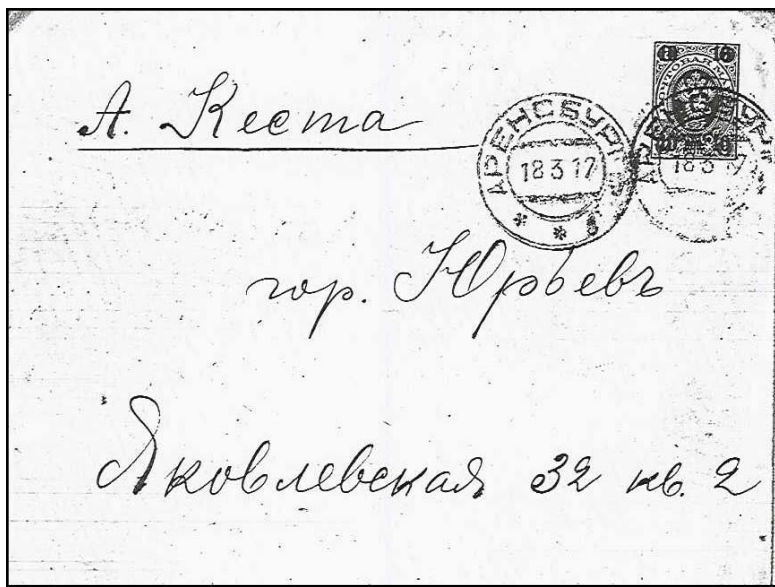 А. Кеста
АРЕНСБУРГ
18 3 17
18 3 17
гор. Юрьевъ
Яковлевская 32 кв. 2